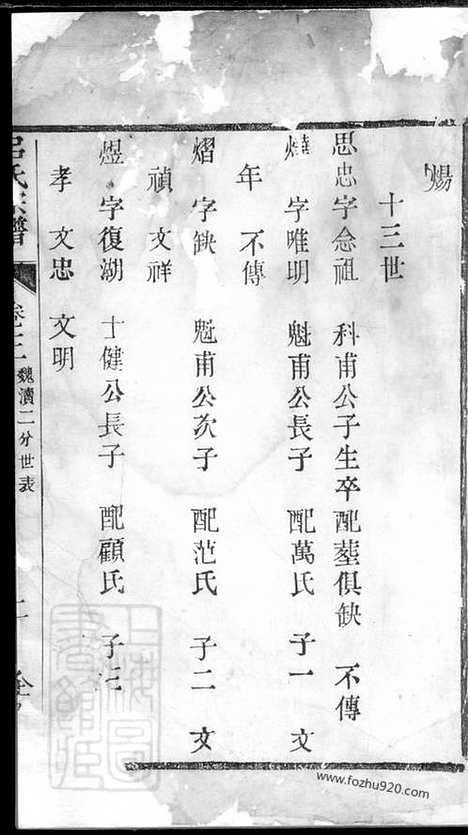 煬
十三世
思忠字念祖 科甫公子生卒配塟俱缺 不傳
字唯明 魁甫公長子 配萬氏 子一 文
年 不傳
熠 字缺 魁甫公次子 配范氏 子二 文
禎 文祥
煜 字復湖 士健公長子 配顧氏 子三
孝 文忠 文明
呂氏宗譜 卷之三 魏瀆二分世表 二
www.fozhu920.com